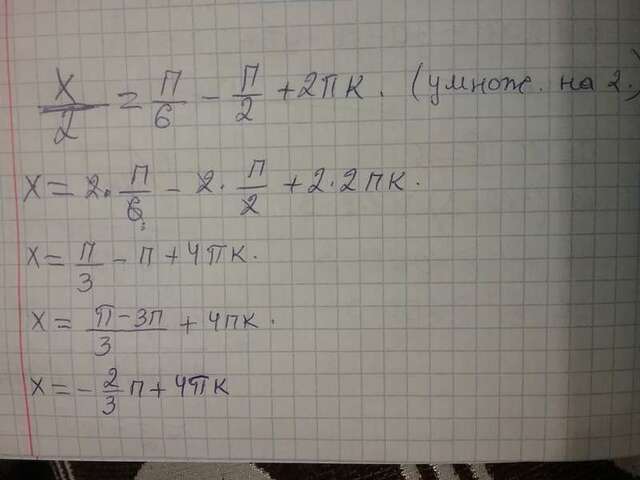 x/2 = π/6 - π/2 + 2πк. (умнож. на 2.)
x = 2·π/6 - 2·π/2 + 2·2πк.
x = π/3 - π + 4πк.
x = (π-3π)/3 + 4πк.
x = -2/3 π + 4πк